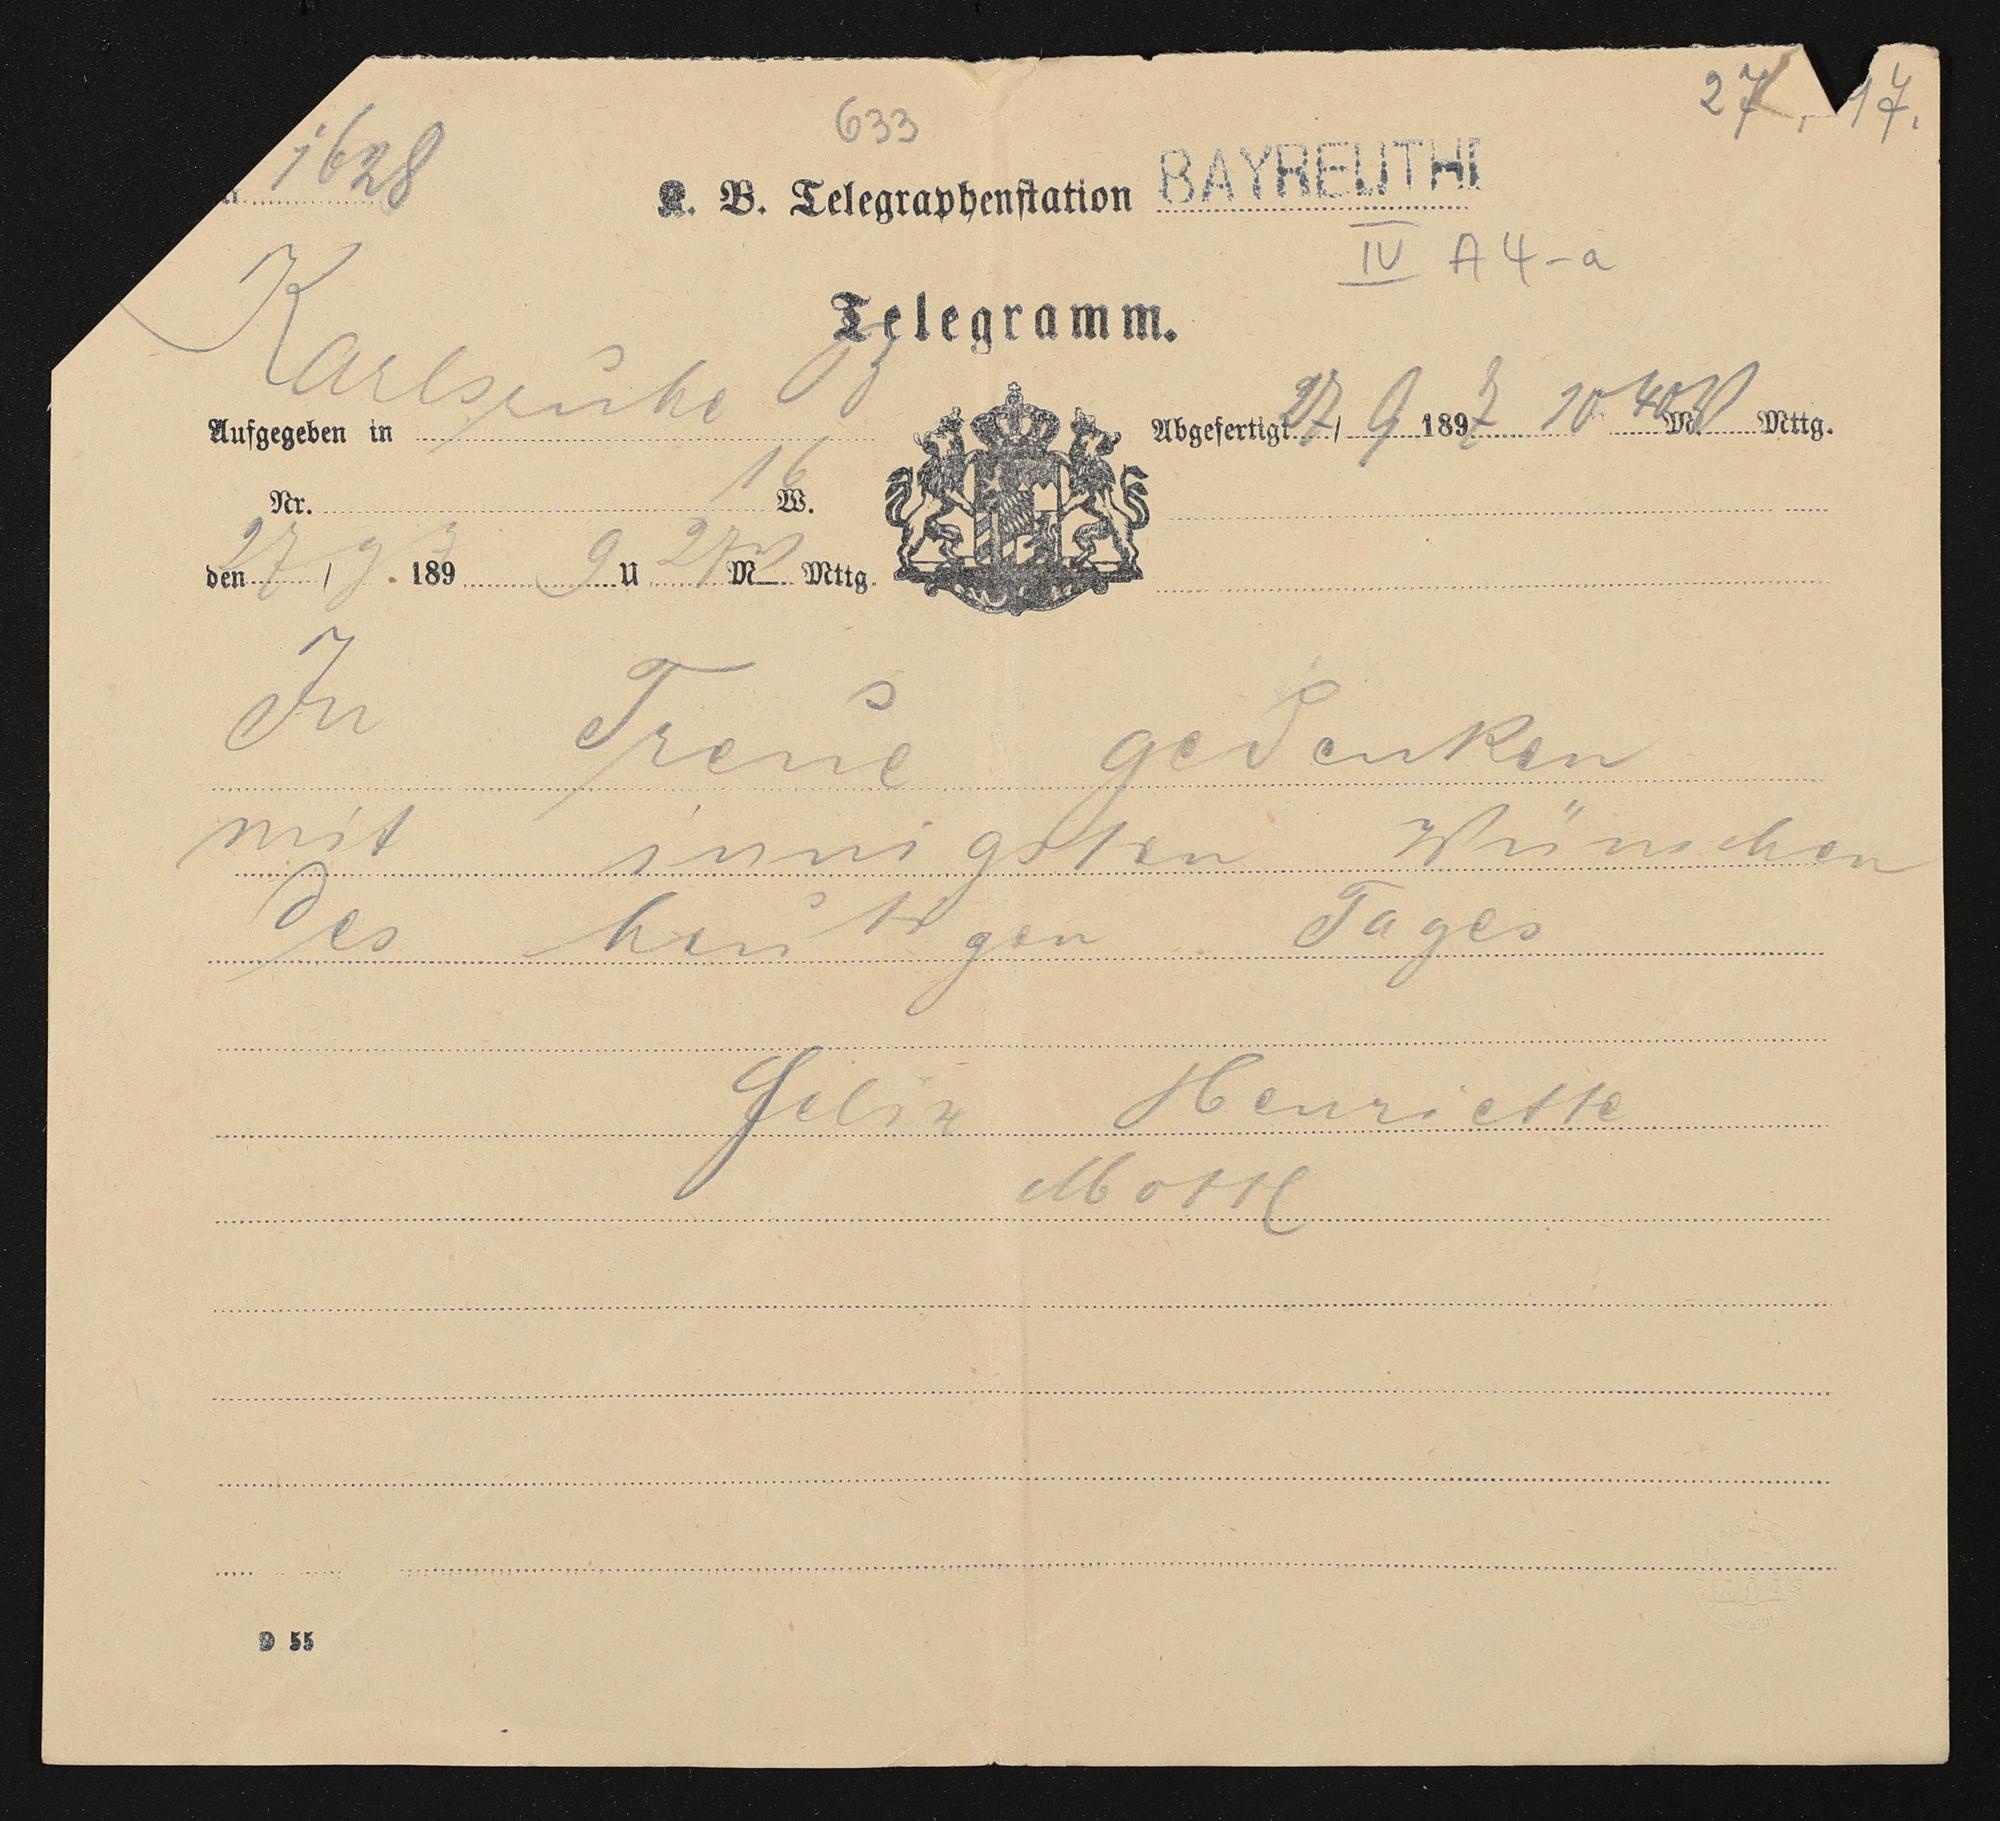 1628
633
27. 17.
K. B. Telegraphenstation BAYREUTH
IV A 4-a
Telegramm.
Karlsruhe
Aufgegeben in
Abgefertigt 27/9 1897 10 40 M. V Mttg.
16
Nr. W.
den 27/9. 1897 9 U 27 M V Mttg.
In Treue gedenken
mit innigsten Wünschen
des heutigen Tages
Felix Henriette
Mottl
D 55